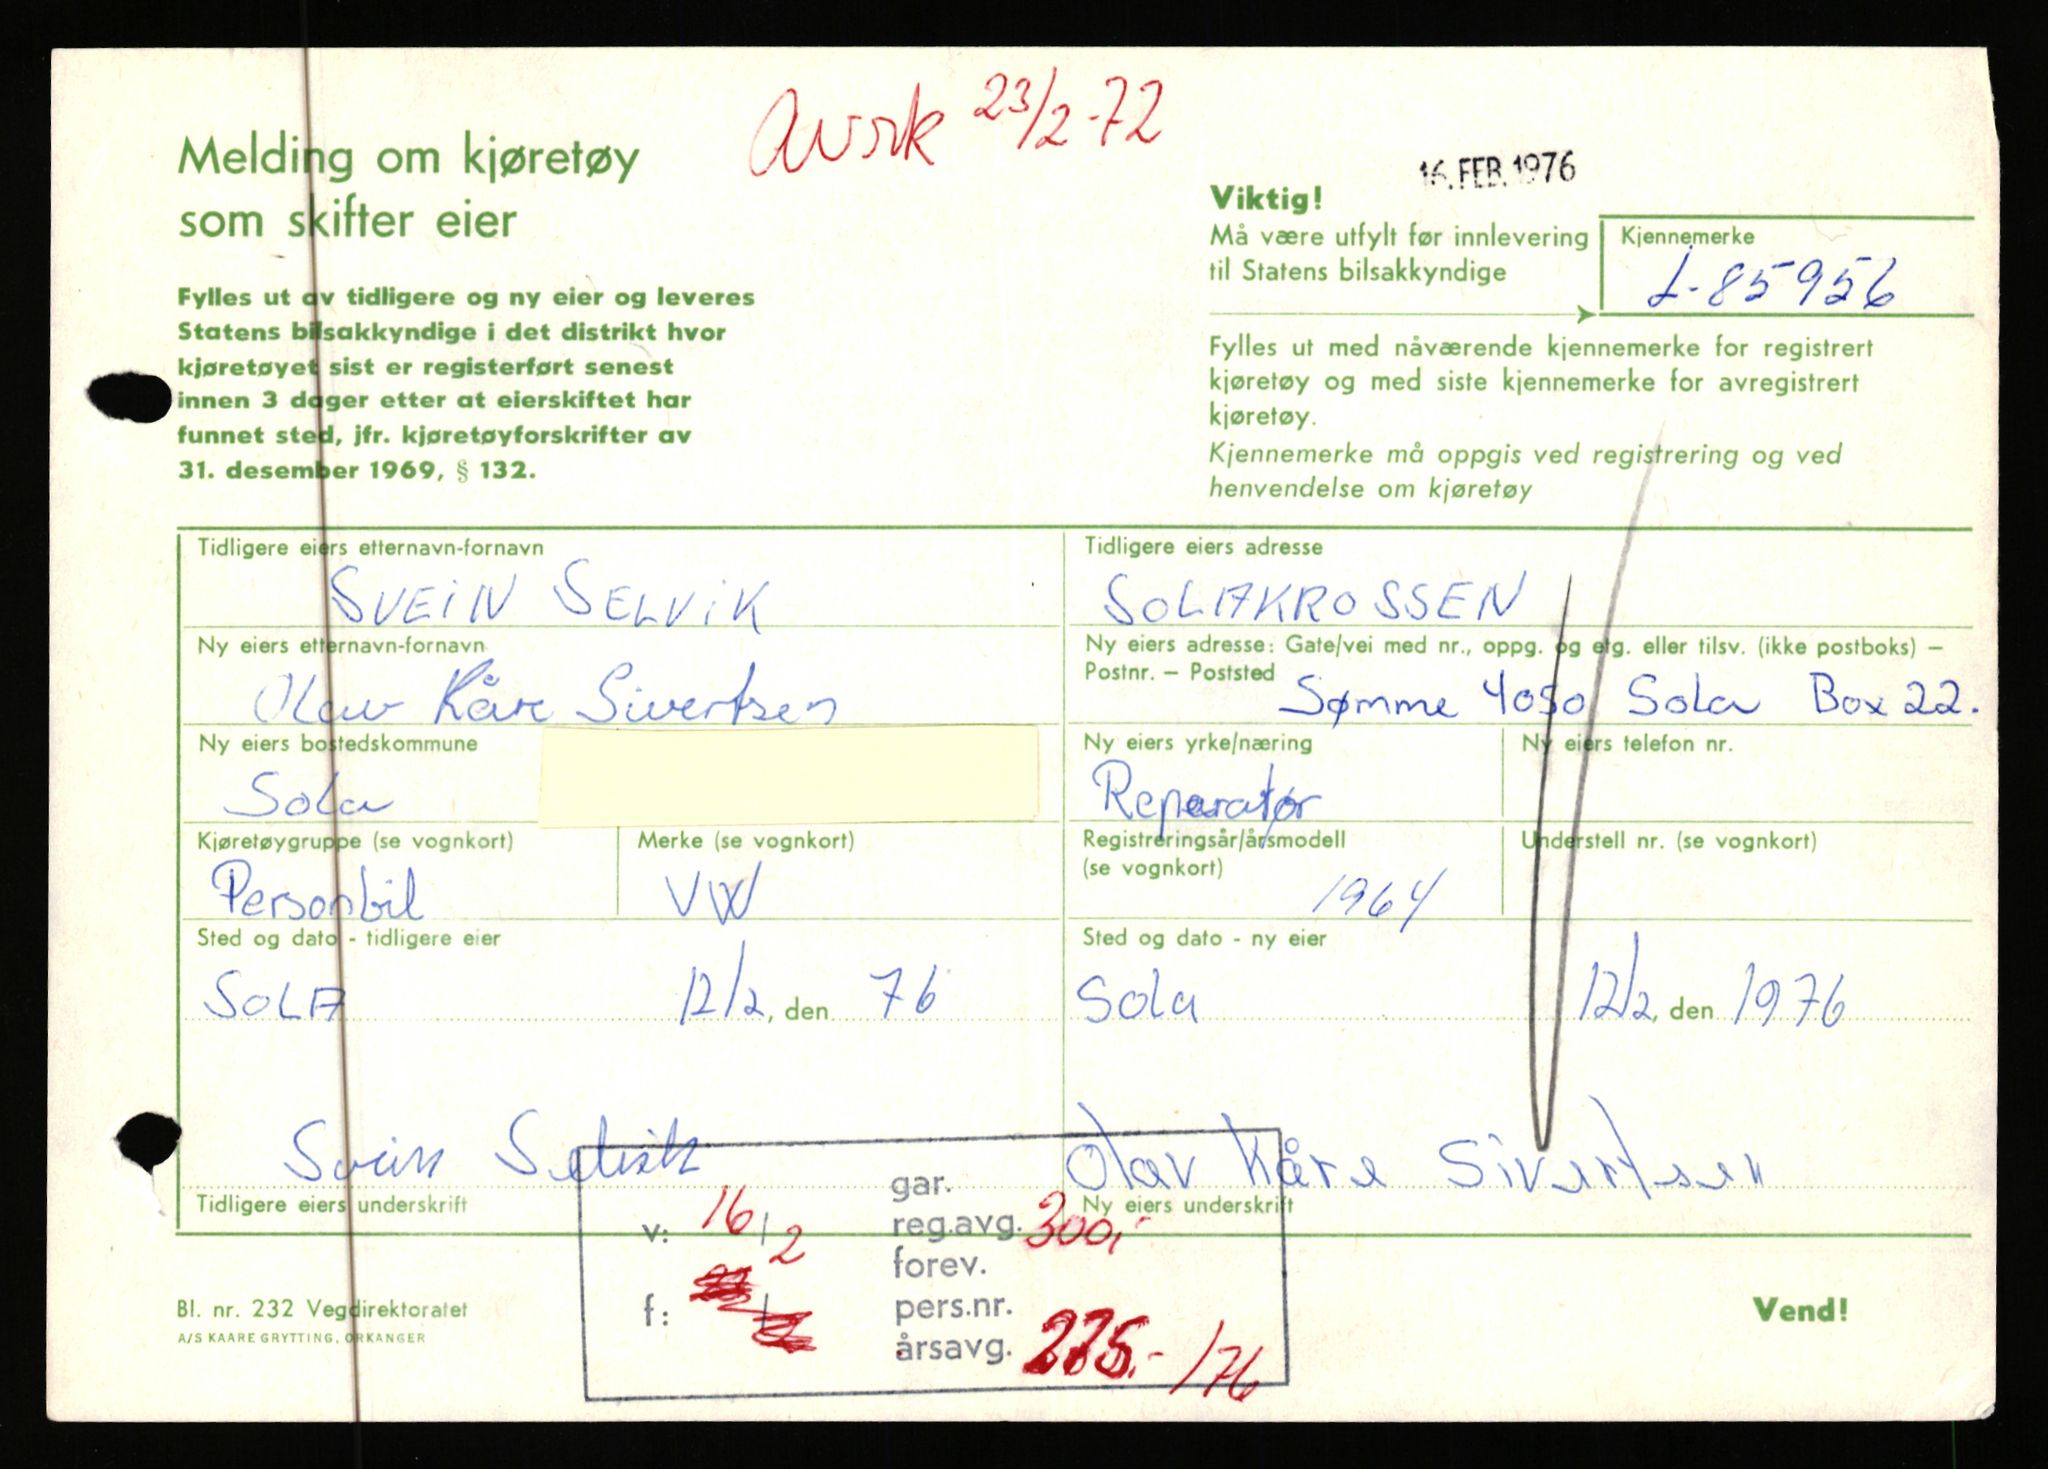 Avsk 23/2-72
Melding om kjøretøy
som skifter eier
16. FEB. 1976
Viktig!
Må være utfylt før innlevering
til Statens bilsakkyndige
Kjennemerke
L-85956
Fylles ut av tidligere og ny eier og leveres
Statens bilsakkyndige i det distrikt hvor
kjøretøyet sist er registerført senest
innen 3 dager etter at eierskiftet har
funnet sted, jfr. kjøretøyforskrifter av
31. desember 1969, § 132.
Fylles ut med nåværende kjennemerke for registrert
kjøretøy og med siste kjennemerke for avregistrert
kjøretøy.
Kjennemerke må oppgis ved registrering og ved
henvendelse om kjøretøy
Tidligere eiers etternavn-fornavn
SVEIN SELVIK
Tidligere eiers adresse
SOLAKROSSEN
Ny eiers etternavn-fornavn
Olav Kåre Sivertsen
Ny eiers adresse: Gate/vei med nr., oppg. og etg. eller tilsv. (ikke postboks) –
Postnr. – Poststed
Sømme 4050 Sola Box 22.
Ny eiers bostedskommune
Sola
Ny eiers yrke/næring
Reparatør
Ny eiers telefon nr.
Kjøretøygruppe (se vognkort)
Personbil
Merke (se vognkort)
VW
Registreringsår/årsmodell
(se vognkort)
1964
Understell nr. (se vognkort)
Sted og dato - tidligere eier
SOLA 12/2, den 76
Sted og dato - ny eier
Sola 12/2, den 1976
Svein Selvik
Tidligere eiers underskrift
Olav Kåre Sivertsen
Ny eiers underskrift
gar.
v: 16/2 reg.avg. 300,-
forev.
f: / pers.nr.
årsavg. 275.- /76
Bl. nr. 232 Vegdirektoratet
A/S KAARE GRYTTING, ORKANGER
Vend!